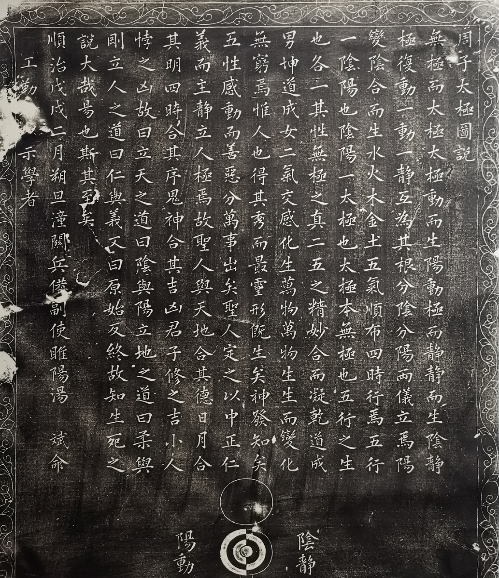 周子太極圖說
無極而太極太極動而生陽動極而靜靜而生陰靜
極復動一動一靜互為其根分陰分陽兩儀立焉陽
變陰合而生水火木金土五氣順布四時行焉五行
一陰陽也陰陽一太極也太極本無極也五行之生
也各一其性無極之真二五之精妙合而凝乾道成
男坤道成女二氣交感化生萬物萬物生生而變化
無窮焉惟人也得其秀而最靈形既生矣神發知矣
五性感動而善惡分萬事出矣聖人定之以中正仁
義而主靜立人極焉故聖人與天地合其德日月合
其明四時合其序鬼神合其吉凶君子修之吉小人
悖之凶故曰立天之道曰陰與陽立地之道曰柔與
剛立人之道曰仁與義又曰原始反終故知生死之
說大哉易也斯其至矣
順治戊戌二月朔旦潼關兵備副使睢陽湯 斌命
工勒 示學者
陰靜
陽動